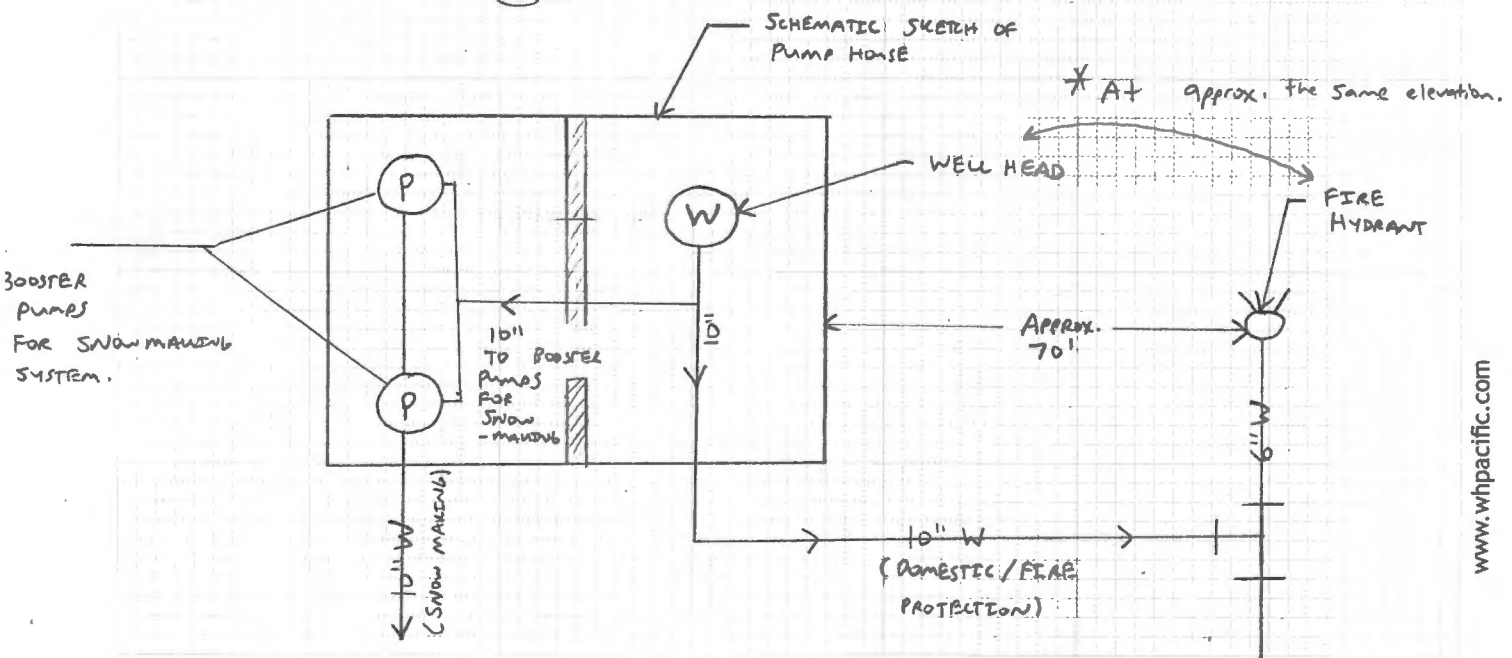 SCHEMATIC SKETCH OF
PUMP HOUSE
* At approx. the same elevation.
WELL HEAD
FIRE
HYDRANT
P
W
BOOSTER
PUMPS
FOR SNOWMAKING
SYSTEM.
10"
TO BOOSTER
PUMPS
FOR
SNOW
-MAKING
10"
APPROX.
70'
P
6" W
10" W
(SNOW MAKING)
10" W
(DOMESTIC/FIRE
PROTECTION)
www.whpacific.com